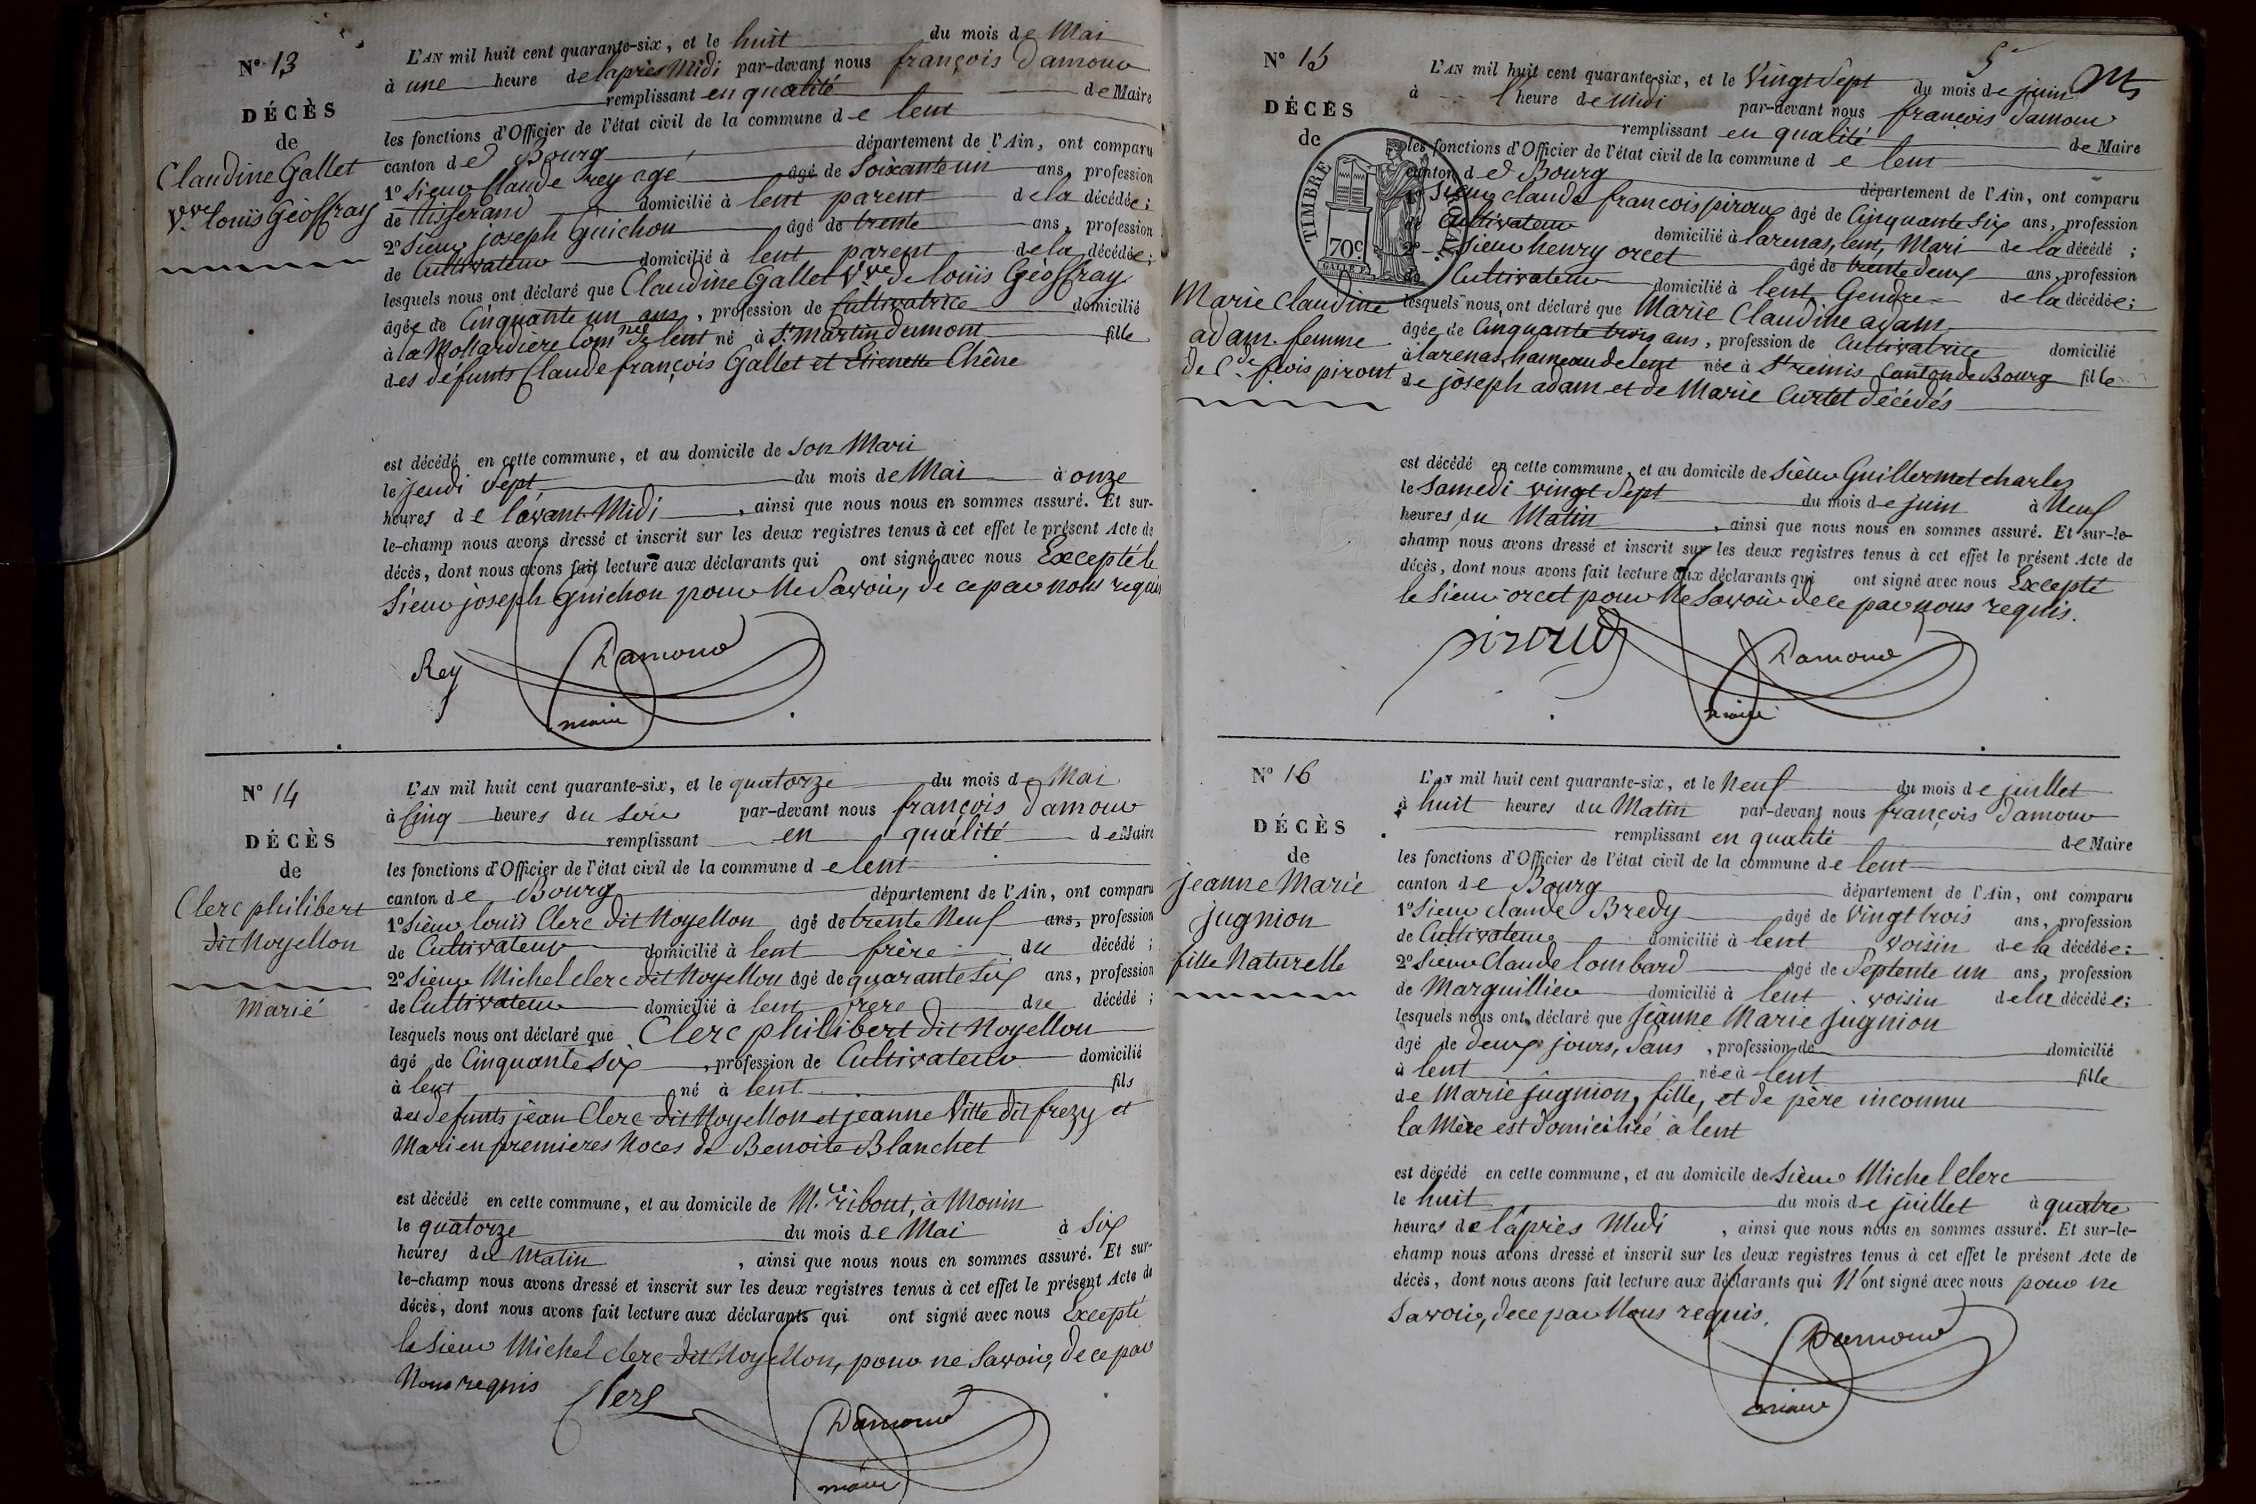 N° 13
DÉCÈS
de
Claudine Gallet
Vve Louis Géoffray
L'AN mil huit cent quarante-six, et le huit du mois de Mai
à une heure de l'après Midi par-devant nous françois Damour
remplissant en qualité de Maire
les fonctions d'Officier de l'état civil de la commune de lent
canton de Bourg département de l'Ain, ont comparu
1° Sieur Claude rey agé âgé de Soixante un ans, profession
de Tisserand domicilié à lent parent de la décédée;
2° Sieur joseph Guichon âgé de trente ans, profession
de Cultivateur domicilié à lent parent de la décédée;
lesquels nous ont déclaré que Claudine Gallet Vve de louis Géoffray
âgée de Cinquante un ans, profession de Cultivatrice domicilié
à la Mollardiere Comne de lent né à St Martin dumont fille
des défunts Claude françois Gallet et Etienette Chêne
est décédé en cette commune, et au domicile de son Mari
le jeudi Sept du mois de Mai à onze
heures de l'avant Midi, ainsi que nous nous en sommes assuré. Et sur-
le-champ nous avons dressé et inscrit sur les deux registres tenus à cet effet le présent Acte de
décès, dont nous avons fait lecture aux déclarants qui ont signé avec nous Excepté le
Sieur joseph guichon pour ne Savoir, de ce par nous requis
Rey Damour
maire
N° 14
DÉCÈS
de
Clerc philibert
dit Noyellon
Marié
L'AN mil huit cent quarante-six, et le quatorze du mois de Mai
à Cinq heures du soir par-devant nous françois Damour
remplissant en qualité de Maire
les fonctions d'Officier de l'état civil de la commune de lent
canton de Bourg département de l'Ain, ont comparu
1° Sieur louis Clerc dit Noyellon âgé de trente Neuf ans, profession
de Cultivateur domicilié à lent frère du décédé;
2° Sieur Michel clerc dit Noyellon âgé de quarante six ans, profession
de Cultivateur domicilié à lent frere du décédé;
lesquels nous ont déclaré que Clerc philibert dit Noyellon
âgé de Cinquante six, profession de Cultivateur domicilié
à lent né à lent fils
des défunts jean Clerc dit Noyellon et jeanne Vitte dit frezy et
Mari en premieres Noces de Benoite Blanchet
est décédé en cette commune, et au domicile de M. ribout, à Monin
le quatorze du mois de Mai à Six
heures du Matin, ainsi que nous nous en sommes assuré. Et sur-
le-champ nous avons dressé et inscrit sur les deux registres tenus à cet effet le présent Acte de
décès, dont nous avons fait lecture aux déclarants qui ont signé avec nous Excepté
le Sieur Michel clerc dit Noyellon, pour ne Savoir, de ce par
Nous requis
Clerc Damour
maire
5e
N° 15
DÉCÈS
de
TIMBRE ROYAL
70c.
Marie Claudine
adam femme
de Cde fcois piroux
L'AN mil huit cent quarante-six, et le Vingt Sept du mois de juin
à 1 heure de Midi par-devant nous françois Damour
remplissant en qualité de Maire
les fonctions d'Officier de l'état civil de la commune de lent
canton de Bourg département de l'Ain, ont comparu
1° Sieur claude françois piroux âgé de Cinquante Six ans, profession
de Cultivateur domicilié à larenas, lent, Mari de la décédé;
2° Sieur henry orcet âgé de trente deux ans, profession
de Cultivateur domicilié à lent Gendre de la décédée;
lesquels nous ont déclaré que Marie Claudine adam
âgée de Cinquante trois ans, profession de Cultivatrice domicilié
à larenas, hameau de lent née à St remis Canton de Bourg fille
de joseph adam et de Marie Curtet décédés
est décédé en cette commune, et au domicile de Sieur Guillermet charles
le Samedi vingt Sept du mois de juin à Neuf
heures du Matin, ainsi que nous nous en sommes assuré. Et sur-le-
champ nous avons dressé et inscrit sur les deux registres tenus à cet effet le présent Acte de
décès, dont nous avons fait lecture aux déclarants qui ont signé avec nous Excepté
le Sieur orcet pour ne Savoir de ce par nous requis.
piroud Damour
maire
N° 16
DÉCÈS
de
jeanne Marie
jugnion
fille Naturelle
L'AN mil huit cent quarante-six, et le Neuf du mois de juillet
à huit heures du Matin par-devant nous françois Damour
remplissant en qualité de Maire
les fonctions d'Officier de l'état civil de la commune de lent
canton de Bourg département de l'Ain, ont comparu
1° Sieur claude Bredy âgé de Vingt trois ans, profession
de Cultivateur domicilié à lent voisin de la décédée;
2° Sieur Claude lombard âgé de Septente un ans, profession
de Marguillier domicilié à lent voisin de la décédée;
lesquels nous ont déclaré que Jeanne Marie Jugnion
âgé de deux jours, Sans, profession de domicilié
à lent née à lent fille
de Marie jugnion, fille, et de père inconnu
la Mère est domiciliée à lent
est décédé en cette commune, et au domicile de Sieur Michel clerc
le huit du mois de juillet à quatre
heures de l'après Midi, ainsi que nous nous en sommes assuré. Et sur-le-
champ nous avons dressé et inscrit sur les deux registres tenus à cet effet le présent Acte de
décès, dont nous avons fait lecture aux déclarants qui N'ont signé avec nous pour ne
Savoir, de ce par Nous requis.
Damour
maire